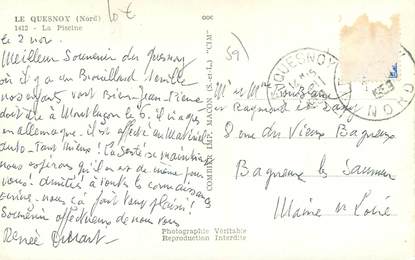 LE QUESNOY (Nord)
1412 - La Piscine
Le 2 nov.
Meilleur Souvenir du Quesnoy
où il y a un Brouillard terrible
nos enfants vont Bien Jean-Pierre
doit être à Montluçon le 5. il
en allemagne. il est affecté au Matériel
auto. Tant mieux! La Santé se maintient
nous espérons qu'il en est de même pour
vous! amitiés à toute la connaissance
nous ça fait plaisir!
Souvenir affectueux de nous tous
Renée
LE COMBIER IMP. MACON (S.-et-L.) "CIM"
59)
QUESNOY
NORD
Mr et Mme
Raymond et
8 rue du Vieux Bagneux
Bagneux les Saumur
Maine et Loire
Photographie Véritable
Reproduction Interdite